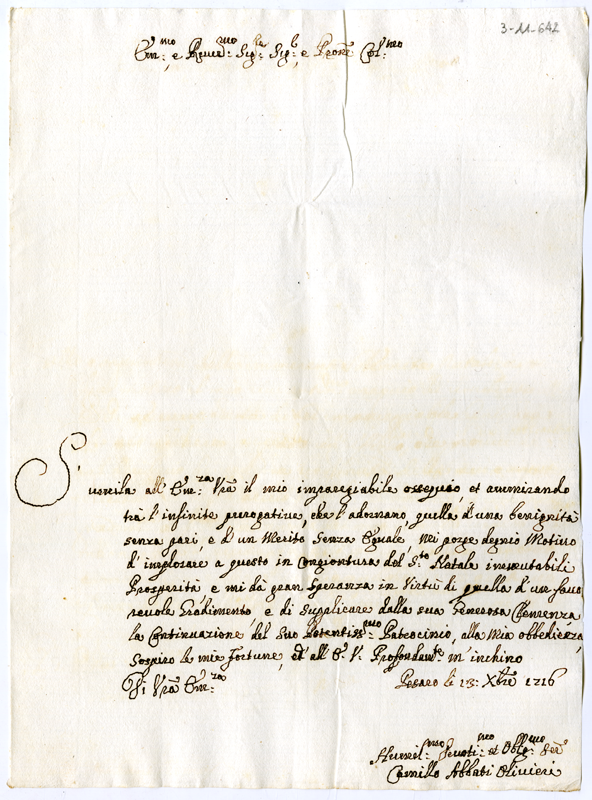 3-11-642
Em:mo e Reuer:mo Sig:re Sig:r e Pron: Col:mo
S'
umilia all' Em:za Vra il mio impareggiabile ossequio, et ammirando
trà l'infinite prerogatiue, che l'adornano, quella d'una benignità
senza pari, e d'un Merito Senza Eguale, mi porge degno Motiuo
d'implorare a questo in Congiontura del S:to Natale inescutabili
Prosperità, e mi dà gran Speranza in Virtù di quella d'un fauo
reuole Gradimento e di Supplicare dalla sua Generosa Clemenza
la Continuazione del Suo Potentiss:mo Patrocinio, alla Mia obbedienza,
Sospiro le mie fortune, et all' E: V: Profondam:te m'inchino
Di Vra Em:za
Pesaro li 13: Xbre 1716
Humil:mo Deuoti:mo et Obblig:mo Ser:
Camillo Abbati Oliuieri